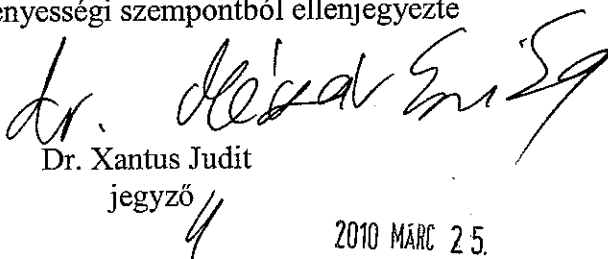 enyességi szempontból ellenjegyezte
dr. Mészár
Dr. Xantus Judit
jegyző
2010 MÁRC 25.